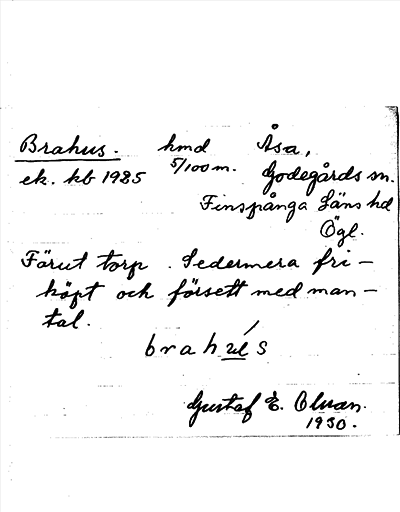 Brahus. hmd Åsa,
ek. kb 1925 5/100 m. Godegårds sn.
Finspånga Läns hd
Ögl.
Förut torp. Sedermera fri-
köpt och försett med man-
tal.
brahu̲s
Gustaf E. Olsson.
1930.